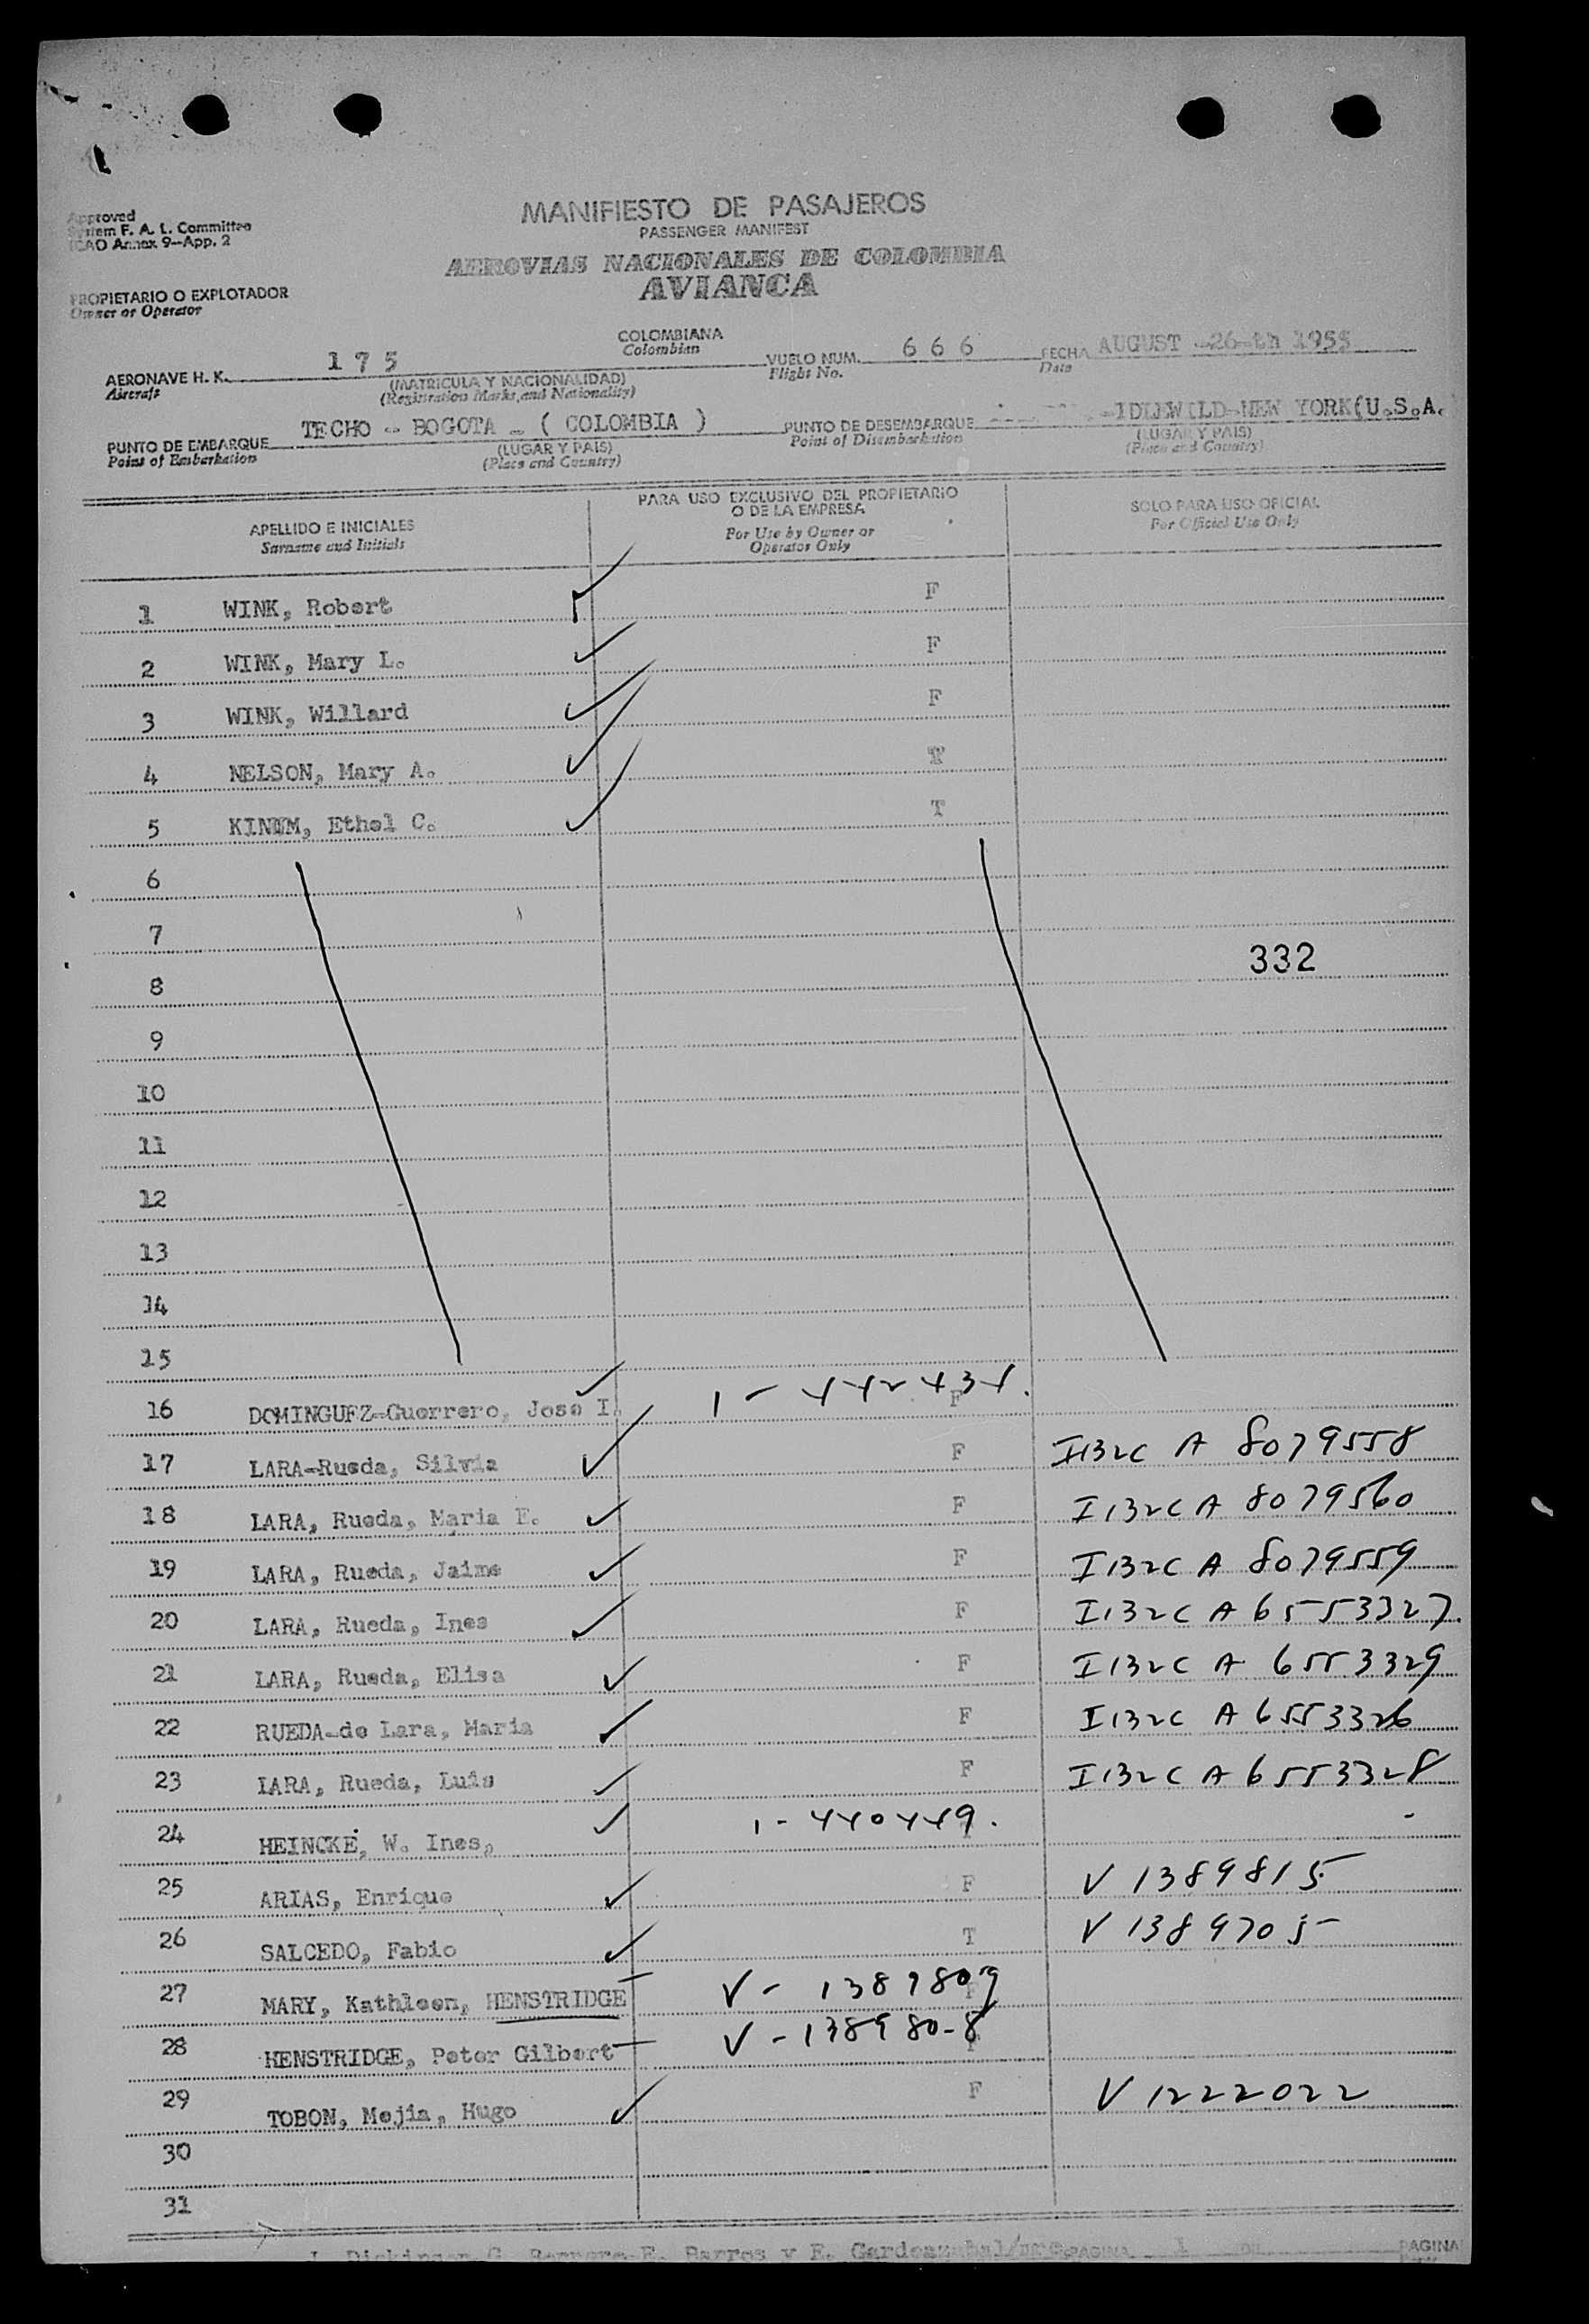 Approved
System F. A. L. Committee
ICAO Annex 9-App. 2
MANIFIESTO DE PASAJEROS
PASSENGER MANIFEST
AEROVIAS NACIONALES DE COLOMBIA
AVIANCA
PROPIETARIO O EXPLOTADOR
Owner or Operator
COLOMBIANA
Colombian
AERONAVE H. K. 175 VUELO NUM. 666 FECHA AUGUST -26-th 1955
Aircraft (MATRICULA Y NACIONALIDAD) Flight No. Date
(Registration Marks and Nationality)
PUNTO DE EMBARQUE TECHO - BOGOTA - ( COLOMBIA ) PUNTO DE DESEMBARQUE -IDLEWILD-NEW YORK(U.S.A.
Point of Embarkation (LUGAR Y PAIS) Point of Disembarkation (LUGAR Y PAIS)
(Place and Country) (Place and Country)
APELLIDO E INICIALES PARA USO EXCLUSIVO DEL PROPIETARIO SOLO PARA USO OFICIAL
Surname and Initials O DE LA EMPRESA For Official Use Only
For Use by Owner or
Operator Only
1 WINK, Robert F
2 WINK, Mary L. F
3 WINK, Willard F
4 NELSON, Mary A. T
5 KINUM, Ethel C. T
6
7
332
8
9
10
11
12
13
14
15
16 DOMINGUEZ-Guerrero, Jose I. 1-442434. F
17 LARA-Rueda, Silvia F I132C A 8079558
18 LARA, Rueda, Maria E. F I132C A 8079560
19 LARA, Rueda, Jaime F I132C A 8079559
20 LARA, Rueda, Ines F I132C A 6553327.
21 LARA, Rueda, Elisa F I132C A 6553329
22 RUEDA-de Lara, Maria F I132C A 6553326
23 LARA, Rueda, Luis F I132C A 6553328
24 HEINCKE, W. Ines, 1-440449.
25 ARIAS, Enrique F V 1389815
26 SALCEDO, Fabio T V 1389705
27 MARY, Kathleen, HENSTRIDGE V-1389809 F
28 HENSTRIDGE, Peter Gilbert V-138980-8 F
29 TOBON, Mejia, Hugo F V 1222022
30
31
E. Barros y E. PAGINA 1 PAGINA